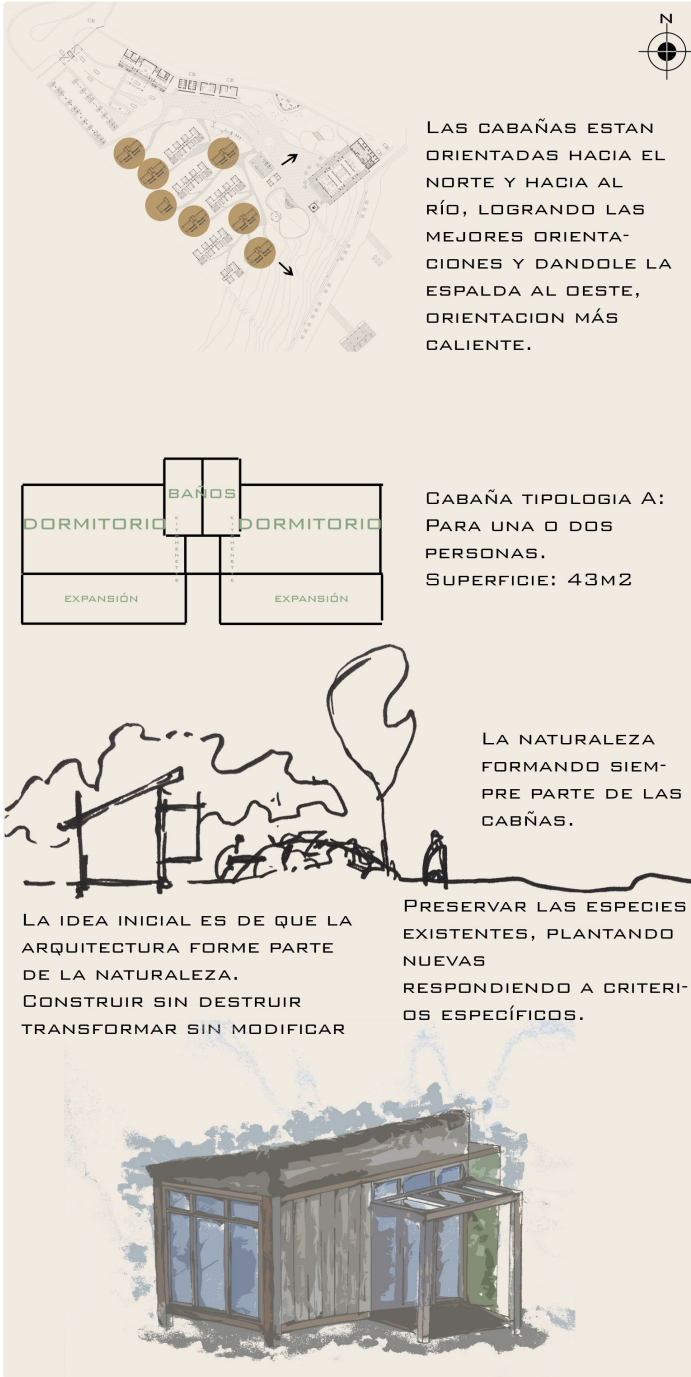 N
LAS CABAÑAS ESTAN
ORIENTADAS HACIA EL
NORTE Y HACIA AL
RÍO, LOGRANDO LAS
MEJORES ORIENTA-
CIONES Y DANDOLE LA
ESPALDA AL OESTE,
ORIENTACION MÁS
CALIENTE.
BAÑOS
DORMITORIO
DORMITORIO
EXPANSIÓN
EXPANSIÓN
CABAÑA TIPOLOGIA A:
PARA UNA O DOS
PERSONAS.
SUPERFICIE: 43M2
LA NATURALEZA
FORMANDO SIEM-
PRE PARTE DE LAS
CABÑAS.
LA IDEA INICIAL ES DE QUE LA
ARQUITECTURA FORME PARTE
DE LA NATURALEZA.
CONSTRUIR SIN DESTRUIR
TRANSFORMAR SIN MODIFICAR
PRESERVAR LAS ESPECIES
EXISTENTES, PLANTANDO
NUEVAS
RESPONDIENDO A CRITERI-
OS ESPECÍFICOS.